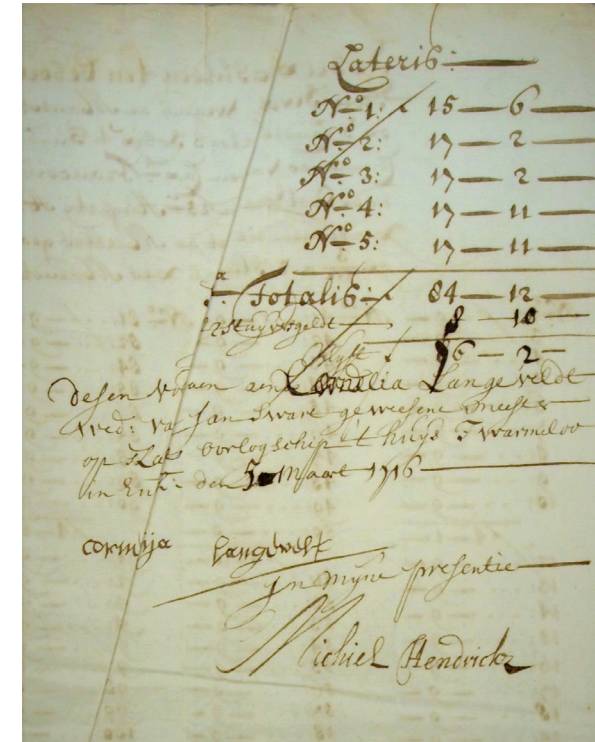 Lateris:
No 1: 15 — 6 —
No 2: 17 — 2 —
No 3: 17 — 2 —
No 4: 17 — 11 —
No 5: 17 — 11 —
Totalis: 84 — 12 —
8 — 10 —
Blyft 76 — 2 —
Desen voldaen aen Cornelia Langeveldt
wed: van Jan Swart geweesene meester
op 's Lants oorlogschip 't huys T warmeloo
in Enk: den 5 Maart 1716
cornija Langevelt
In myne presentie
Michiel Hendrickz